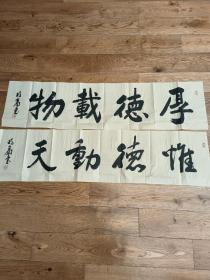 厚德載物
惟德動天